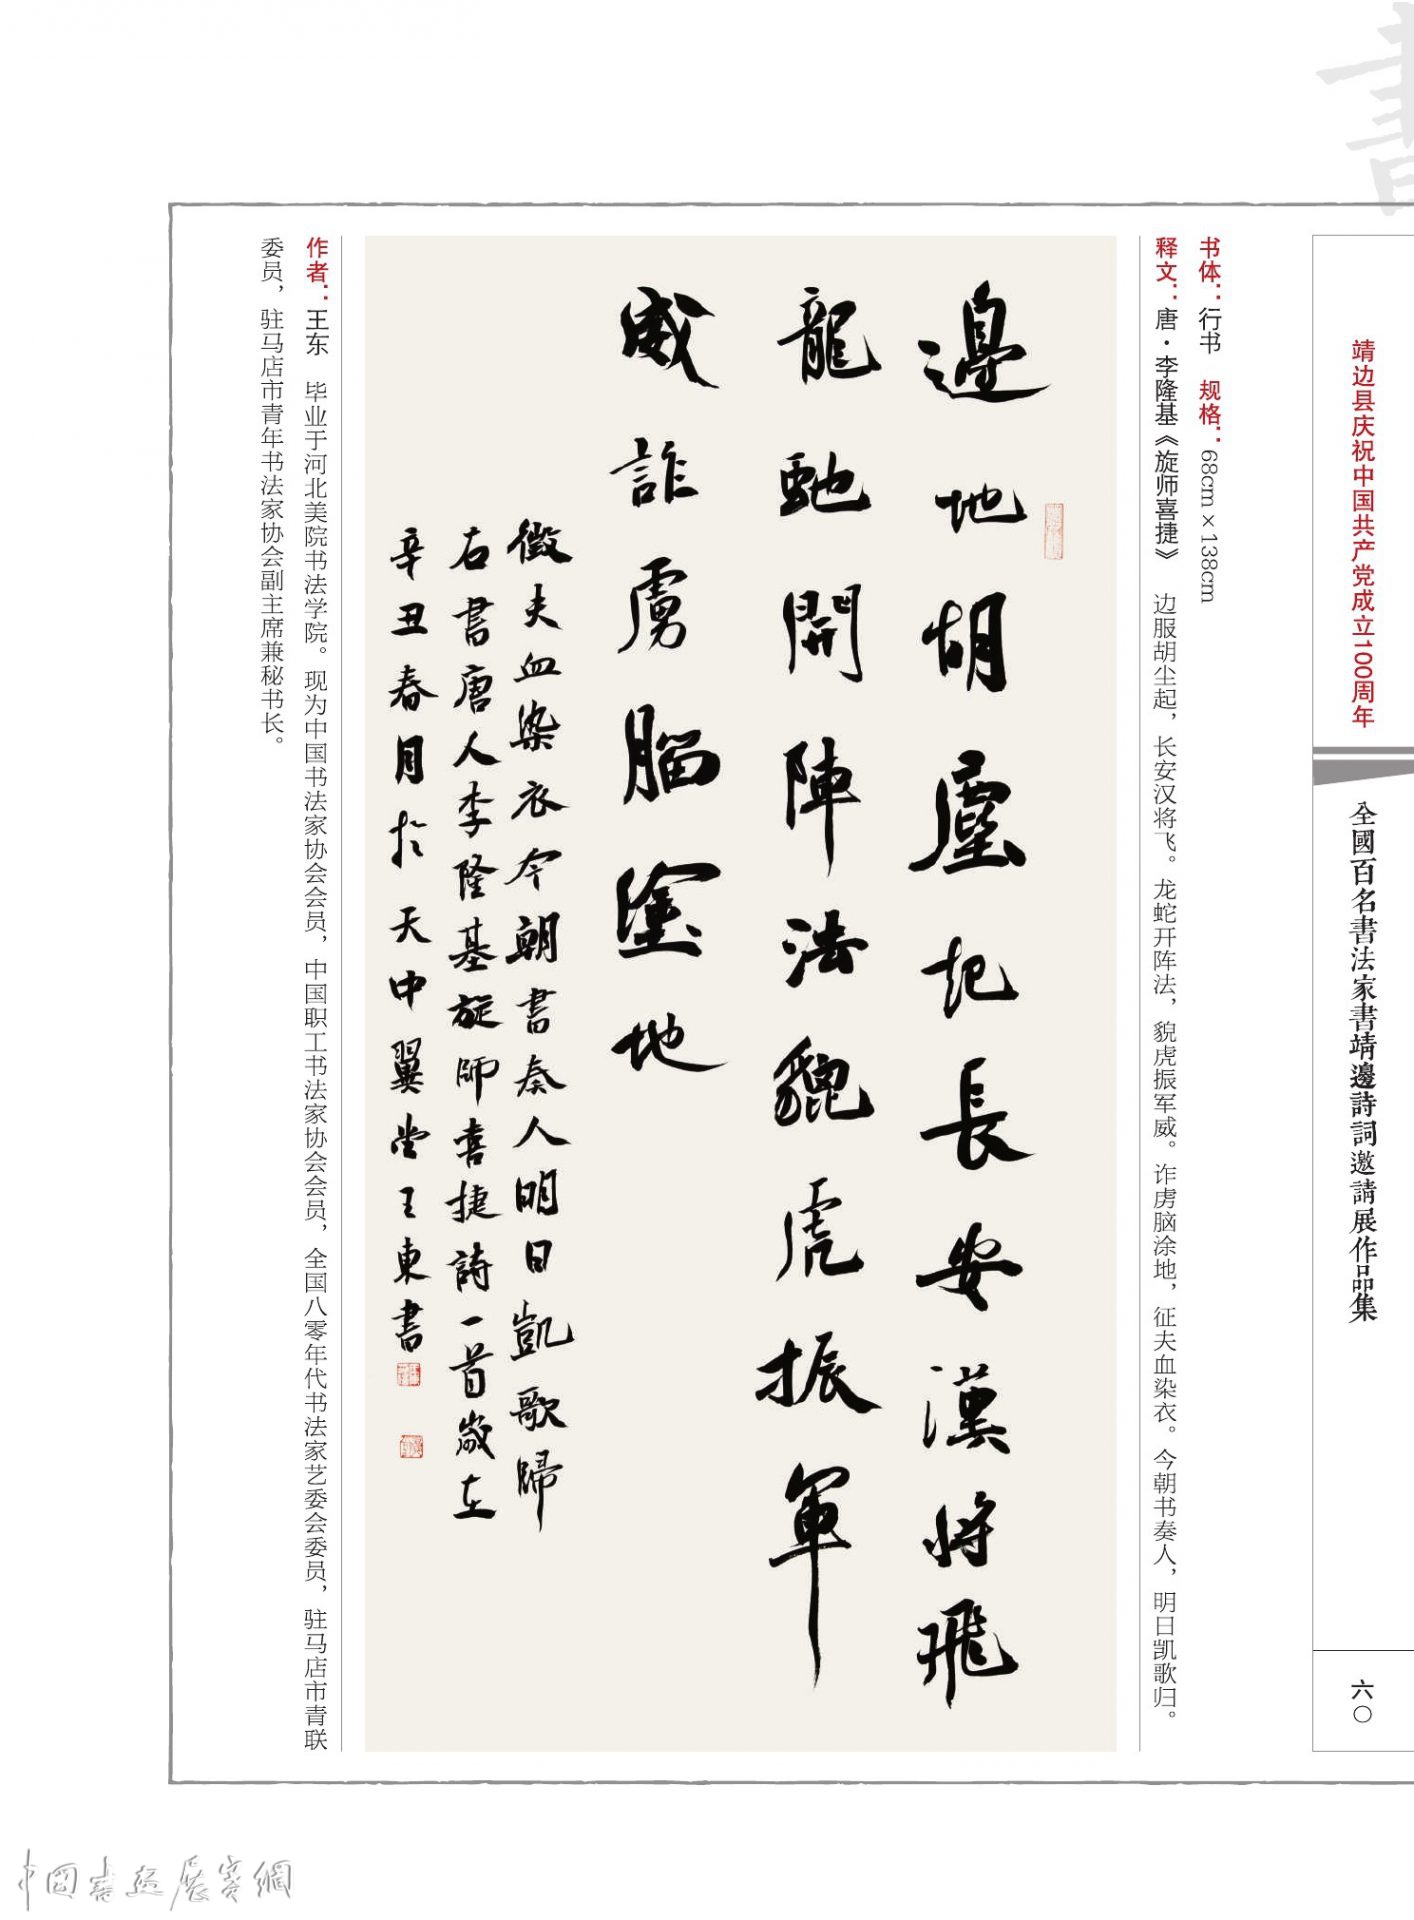 靖边县庆祝中国共产党成立100周年
全國百名書法家書靖邊詩詞邀請展作品集
六〇
书体：行书 规格：68cm×138cm
释文：唐·李隆基《旋师喜捷》 边服胡尘起，长安汉将飞。龙蛇开阵法，貔虎振军威。诈虏脑涂地，征夫血染衣。今朝书奏人，明日凯歌归。
邊地胡塵起長安漢將飛
龍馳開陣法貔虎振軍
威詐虜腦塗地
徵夫血染衣今朝書奏人明日凱歌歸
右書唐人李隆基旋師喜捷詩一首歲在
辛丑春月於天中翼堂王東書
作者：王东 毕业于河北美院书法学院。现为中国书法家协会会员，中国职工书法家协会会员，全国八零年代书法家艺委会委员，驻马店市青联
委员，驻马店市青年书法家协会副主席兼秘书长。
中國書畫展賽網
書